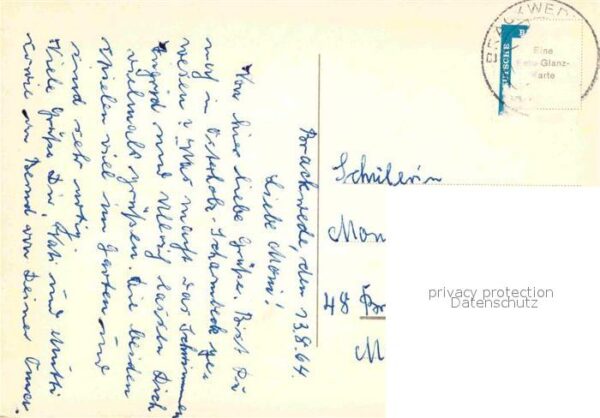 Brackwede, den 13.8.64.
Liebe Moni!
Von hier liebe Grüße. Bist Du
noch in Osterholz-Scharmbeck ge-
wesen? Was macht das Schwimmen
Ingrid und Ulrich lassen Dich
vielmals grüßen. Die beiden
spielen viel im Garten und
sind sehr artig.
Viele Grüße Dir, Vati und Mutti
sowie an Bernd von Deiner Omi.
Schülerin
Mon
48
M
BRACKWEDE
Eine
Echt-Glanz-
Karte
privacy protection
Datenschutz